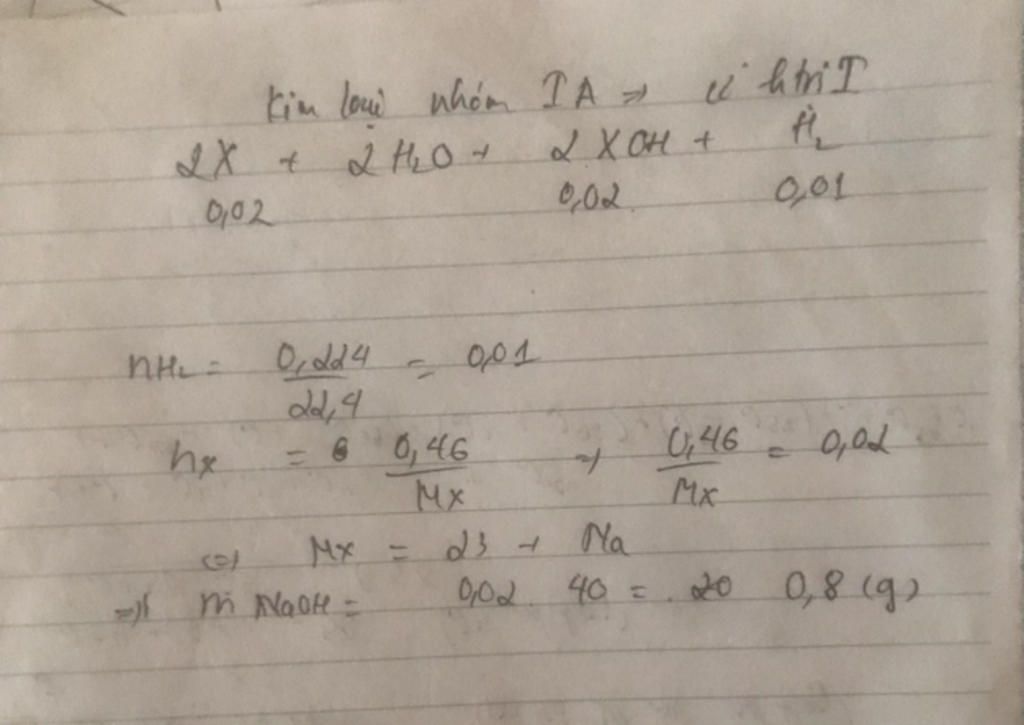 Kim loại nhóm IA ⇒ có h trị I
2X + 2H₂O → 2XOH + H₂
0,02 0,02 0,01
nH₂ = 0,224/22,4 = 0,01
nx = 0,46/Mx → 0,46/Mx = 0,02
⇔ Mx = 23 → Na
⇒ m NaOH = 0,02 . 40 = 20 0,8 (g)